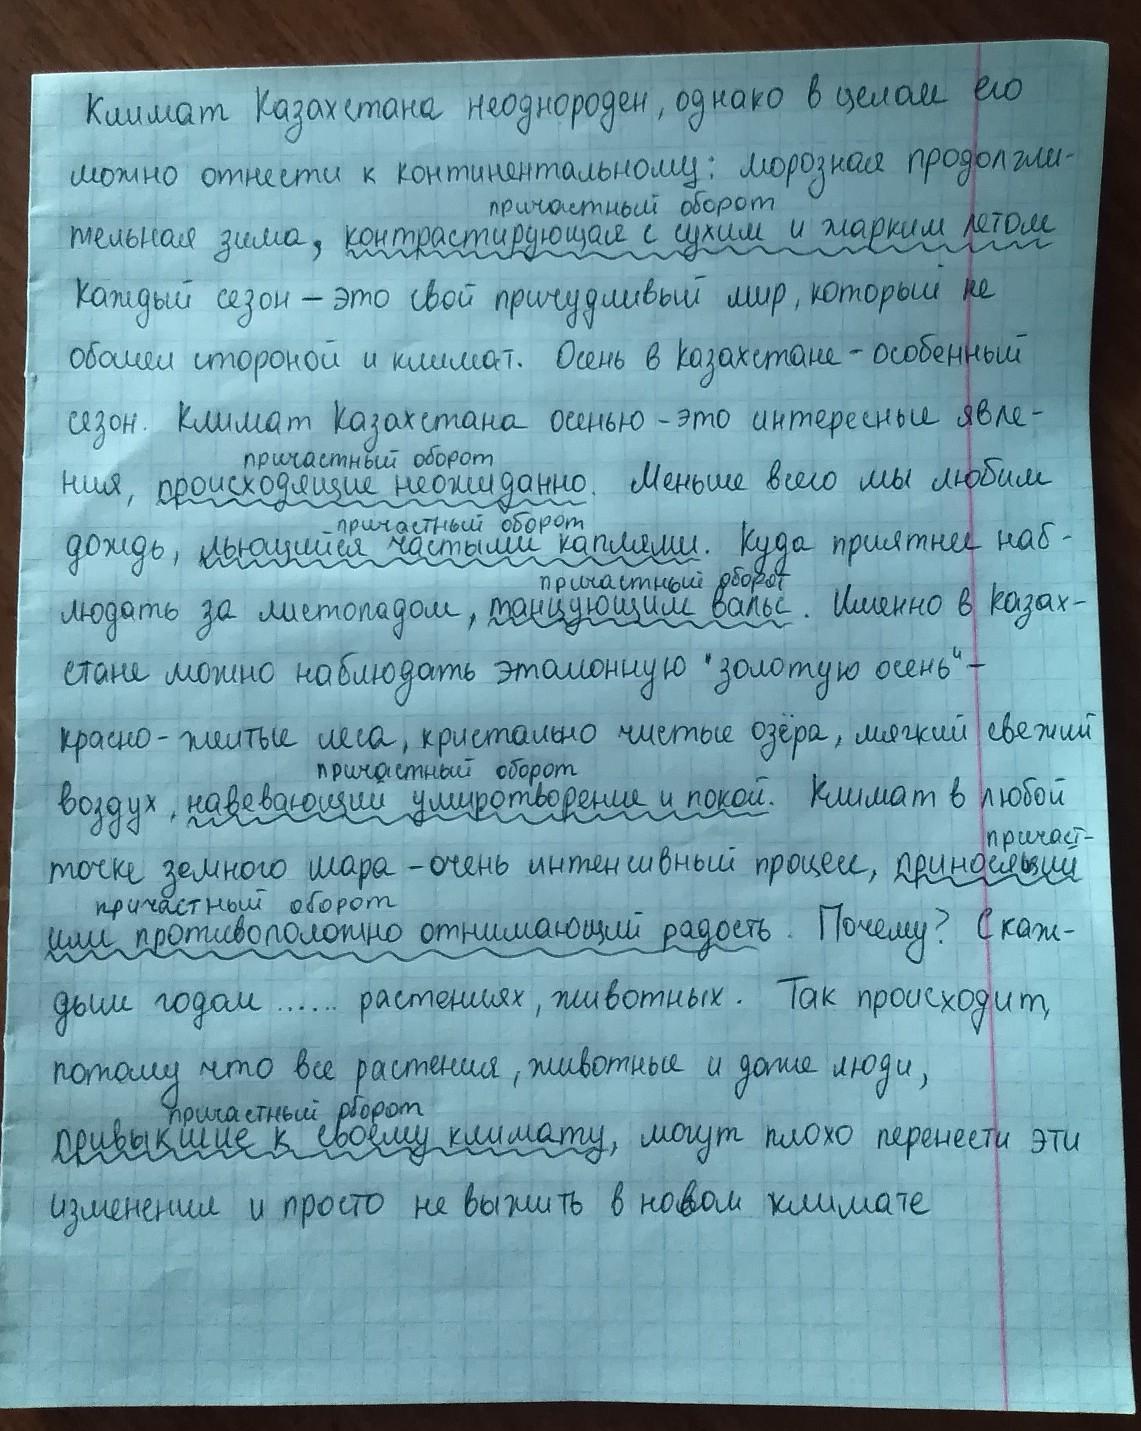 Климат Казахстана неоднороден, однако в целом его
можно отнести к континентальному: морозная продолжи-
причастный оборот
тельная зима, контрастирующая с сухим и жарким летом
Каждый сезон – это свой причудливый мир, который не
обошел стороной и климат. Осень в Казахстане – особенный
сезон. Климат Казахстана осенью – это интересные явле-
причастный оборот
ния, происходящие неожиданно. Меньше всего мы любим
причастный оборот
дождь, льющийся частыми каплями. Куда приятнее наб-
причастный оборот
людать за листопадом, танцующим вальс. Именно в Казах-
стане можно наблюдать эталонную "золотую осень" –
красно-желтые леса, кристально чистые озёра, мягкий свежий
причастный оборот
воздух, навевающий умиротворение и покой. Климат в любой
причаст-
точке земного шара – очень интенсивный процесс, приносящий
причастный оборот
или противоположно отнимающий радость. Почему? С каж-
дым годом ...... растениях, животных. Так происходит,
потому что все растения, животные и даже люди,
причастный оборот
привыкшие к своему климату, могут плохо перенести эти
изменения и просто не выжить в новом климате